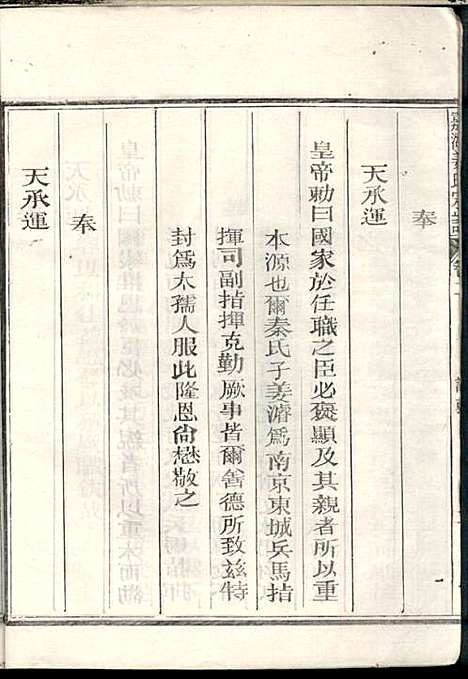 奉
天承運
皇帝勅曰國家於任職之臣必褒顯及其親者所以重
本源也爾秦氏子姜濬為南京東城兵馬指
揮司副指揮克勤厥事皆爾善德所致兹特
封爲太孺人服此隆恩尙懋敬之
奉
天承運